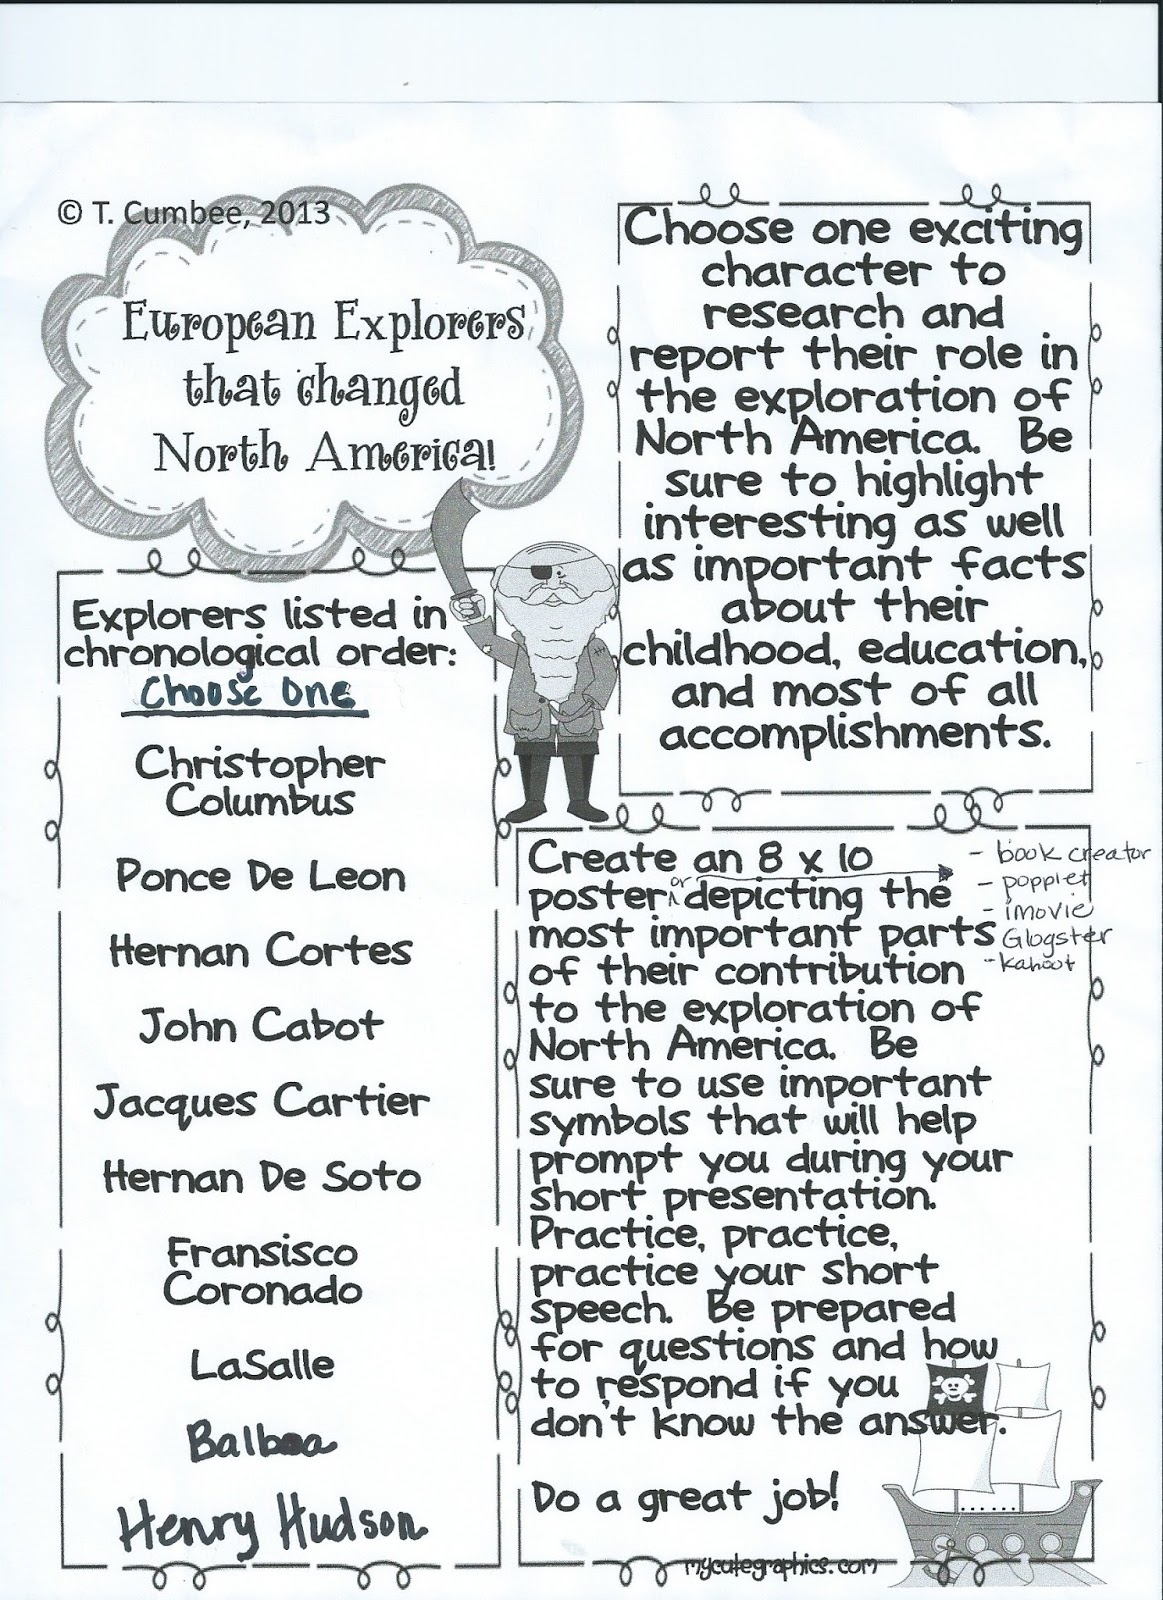 © T. Cumbee, 2013
European Explorers
that changed
North America!
Explorers listed in
chronological order:
Choose One
Christopher
Columbus
Ponce De Leon
Hernan Cortes
John Cabot
Jacques Cartier
Hernan De Soto
Fransisco
Coronado
LaSalle
Balboa
Henry Hudson
Choose one exciting
character to
research and
report their role in
the exploration of
North America. Be
sure to highlight
interesting as well
as important facts
about their
childhood, education,
and most of all
accomplishments.
Create an 8 x 10
poster or depicting the
most important parts
of their contribution
to the exploration of
North America. Be
sure to use important
symbols that will help
prompt you during your
short presentation.
Practice, practice,
practice your short
speech. Be prepared
for questions and how
to respond if you
don't know the answer.
- book creator
- popplet
- imovie
Glogster
- kahoot
Do a great job!
mycutegraphics.com